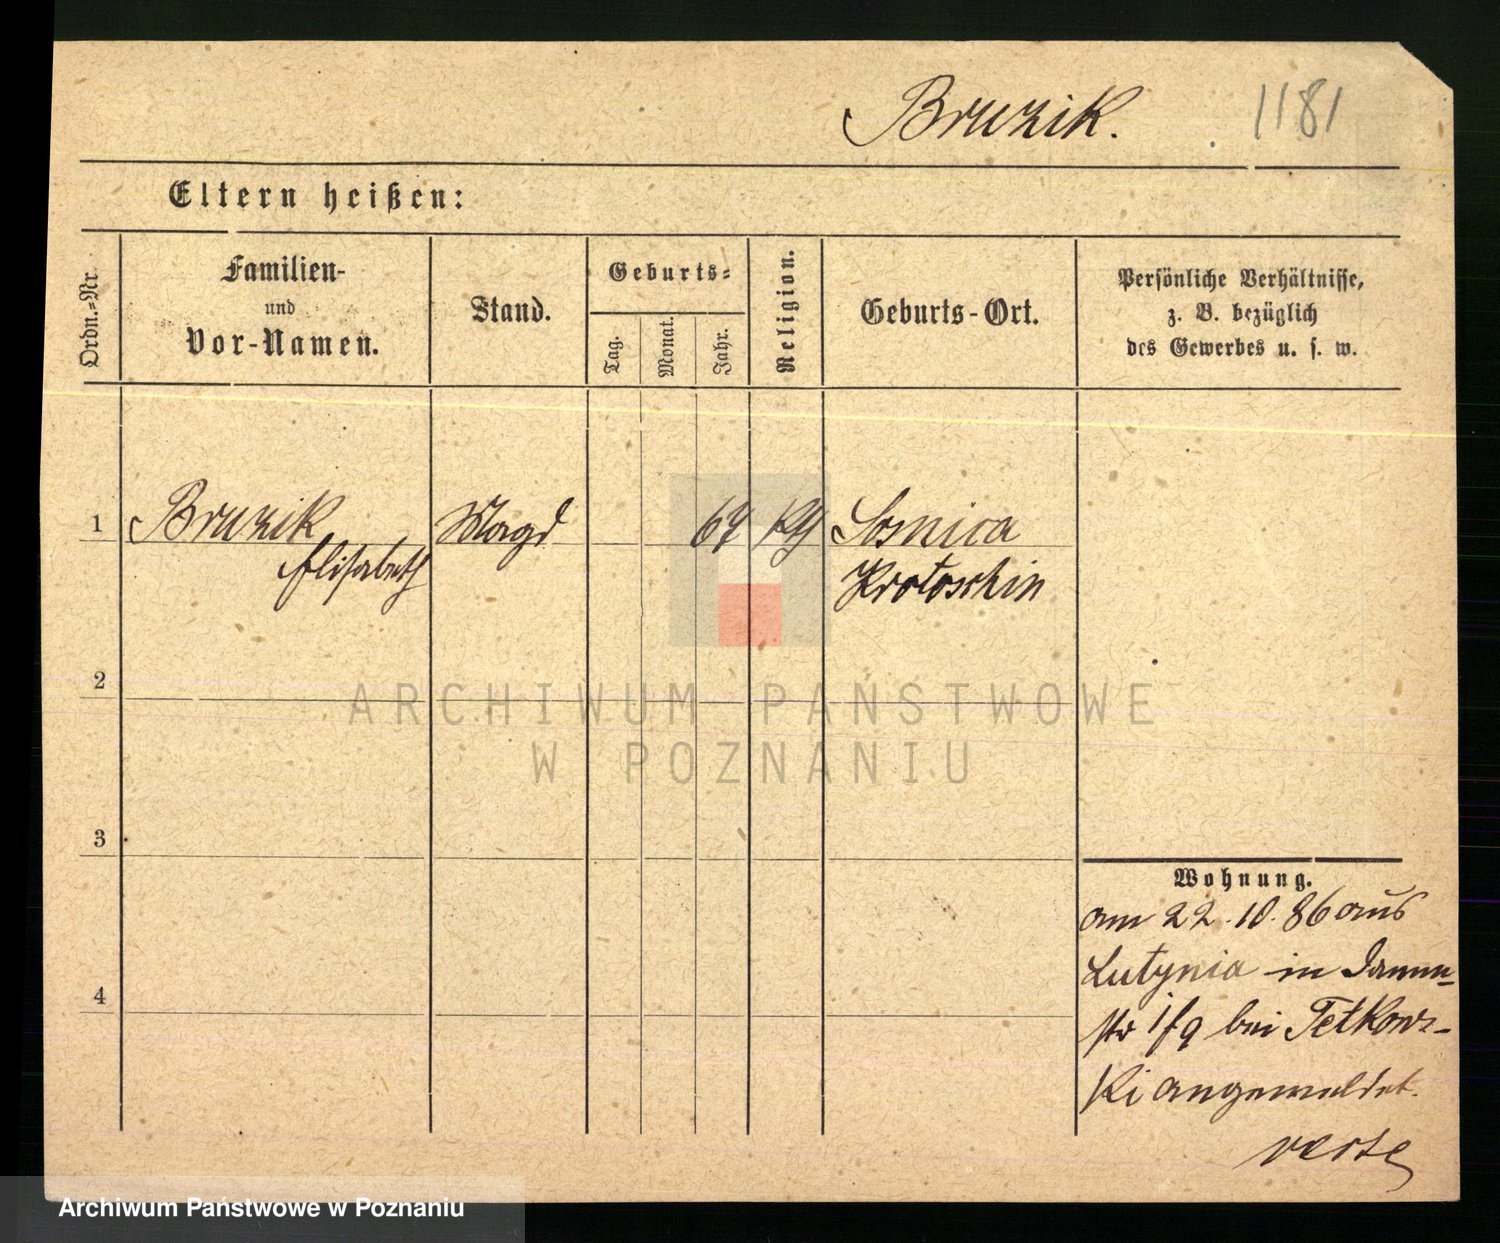 Bruzik. 1181
Eltern heißen:
Ordn.-Nr.
Familien-
und
Vor-Namen.
Stand.
Geburts-
Tag.
Monat.
Jahr.
Religion.
Geburts-Ort.
Persönliche Verhältnisse,
z. B. bezüglich
des Gewerbes u. s. w.
1 Bruzik Magd Sosnica
Elisabeth Krotoschin
2
ARCHIWUM PAŃSTWOWE
W POZNANIU
3
Wohnung.
am 22.10.86 aus
Lutynia in Damm-
str bei Tetkows-
4
ki angemeldet.
Archiwum Państwowe w Poznaniu